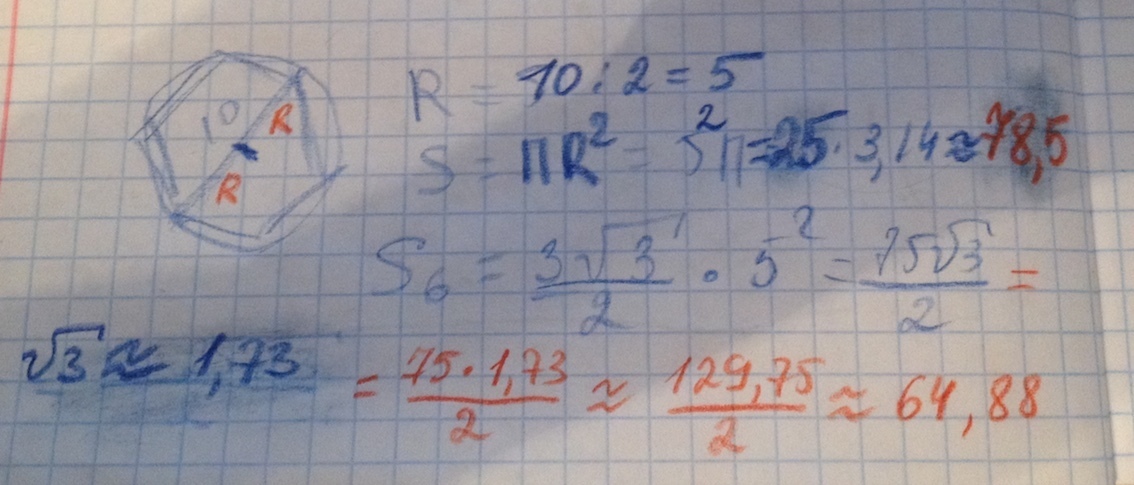 10
R
R
R = 10 : 2 = 5
S = ПR² = 5²П = 25 · 3,14 ≈ 78,5
S₆ = 3√3/2 · 5² = 75√3/2 =
√3 ≈ 1,73
= 75·1,73/2 ≈ 129,75/2 ≈ 64,88